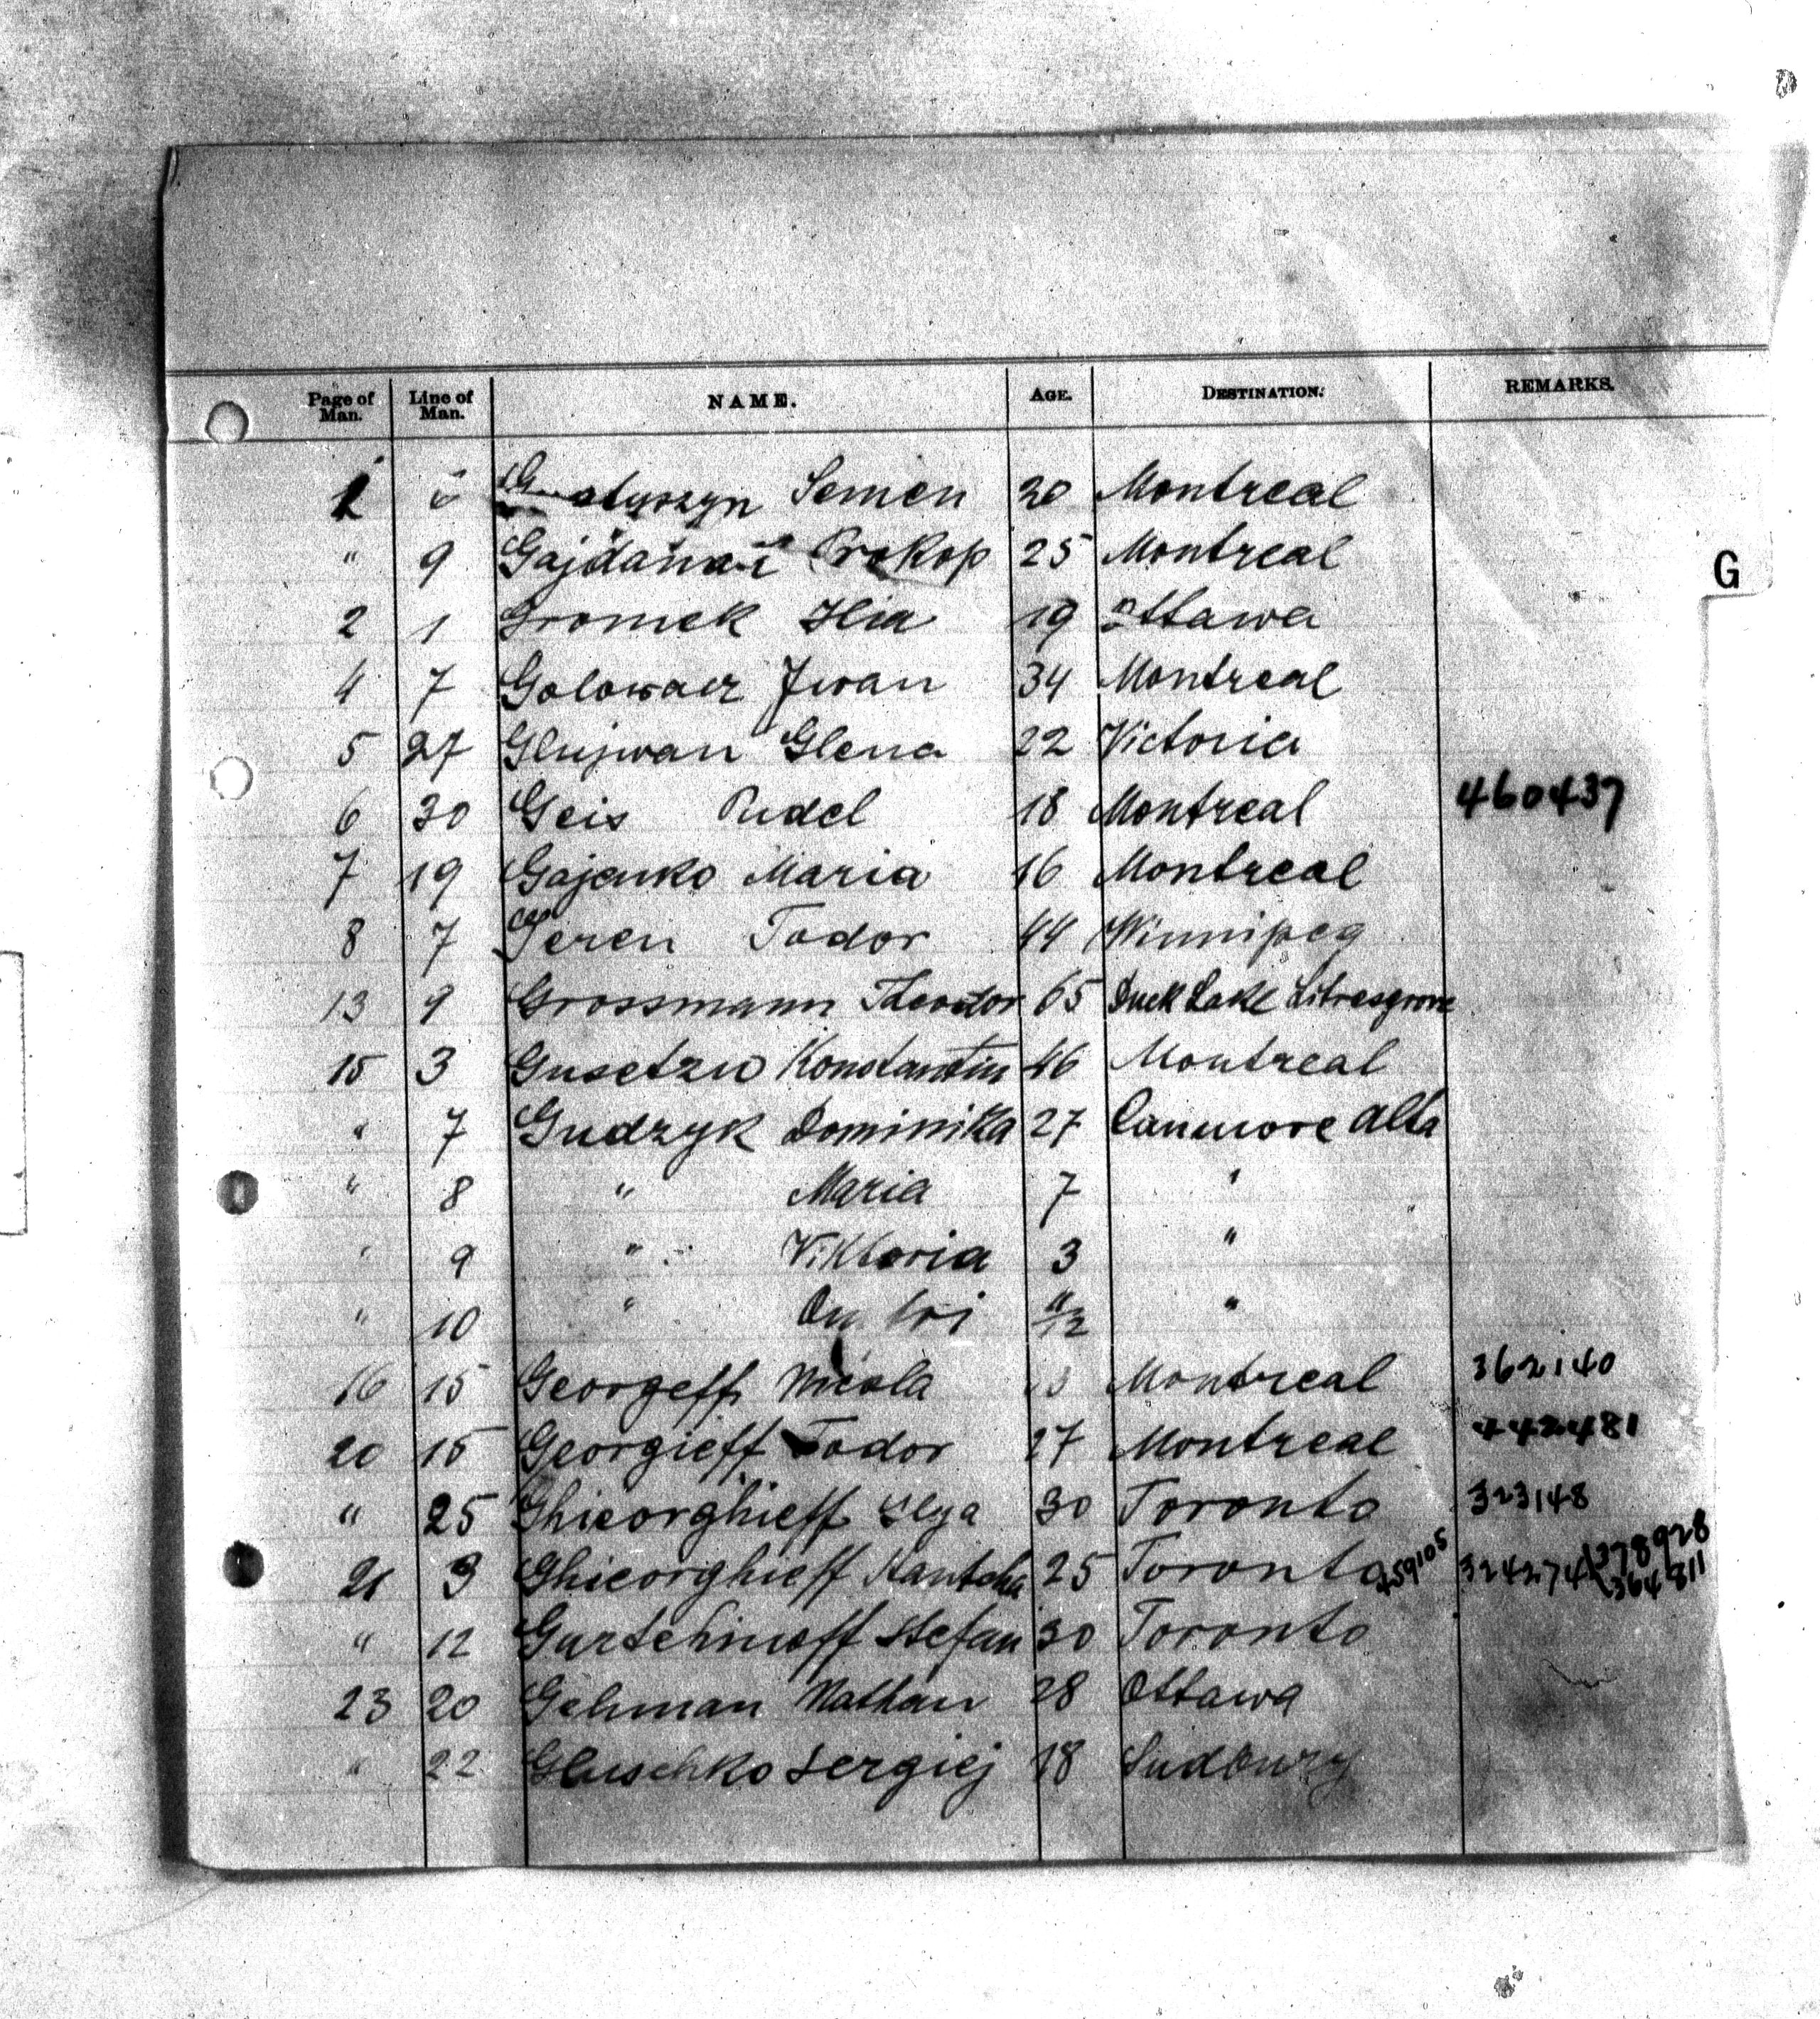 Page of Man. Line of Man. NAME. AGE. DESTINATION. REMARKS.
G
Semen 30 Montreal
" 9 Prokop 25 Montreal
2 1 Gromek Ilia 19 Ottawa
4 7 Iwan 34 Montreal
5 27 Glujwan Glena 22 Victoria
6 30 Geis Rudel 18 Montreal 460437
7 19 Gajenko Maria 16 Montreal
8 7 Geren Todor 44 Winnipeg
13 9 Grossmann Theodor 65 Duck Lake
15 3 Gusetzu Konstantin 46 Montreal
" 7 Gudzyk Dominika 27 Canmore Alta
" 8 " Maria 7 "
" 9 " Viktoria 3 "
" 10 " 11/12 "
16 15 Georgeff Nicola Montreal 362140
20 15 Georgieff Todor 27 Montreal 442481
" 25 Ghieorghieff Ilya 30 Toronto 323148
21 3 Ghieorghieff 25 Toronto 459105 324274 378928 364811
" 12 Gurtchinoff Stefan 30 Toronto
23 20 Gehman Nathan 28 Ottawa
" 22 Gluschko Sergiej 18 Sudbury